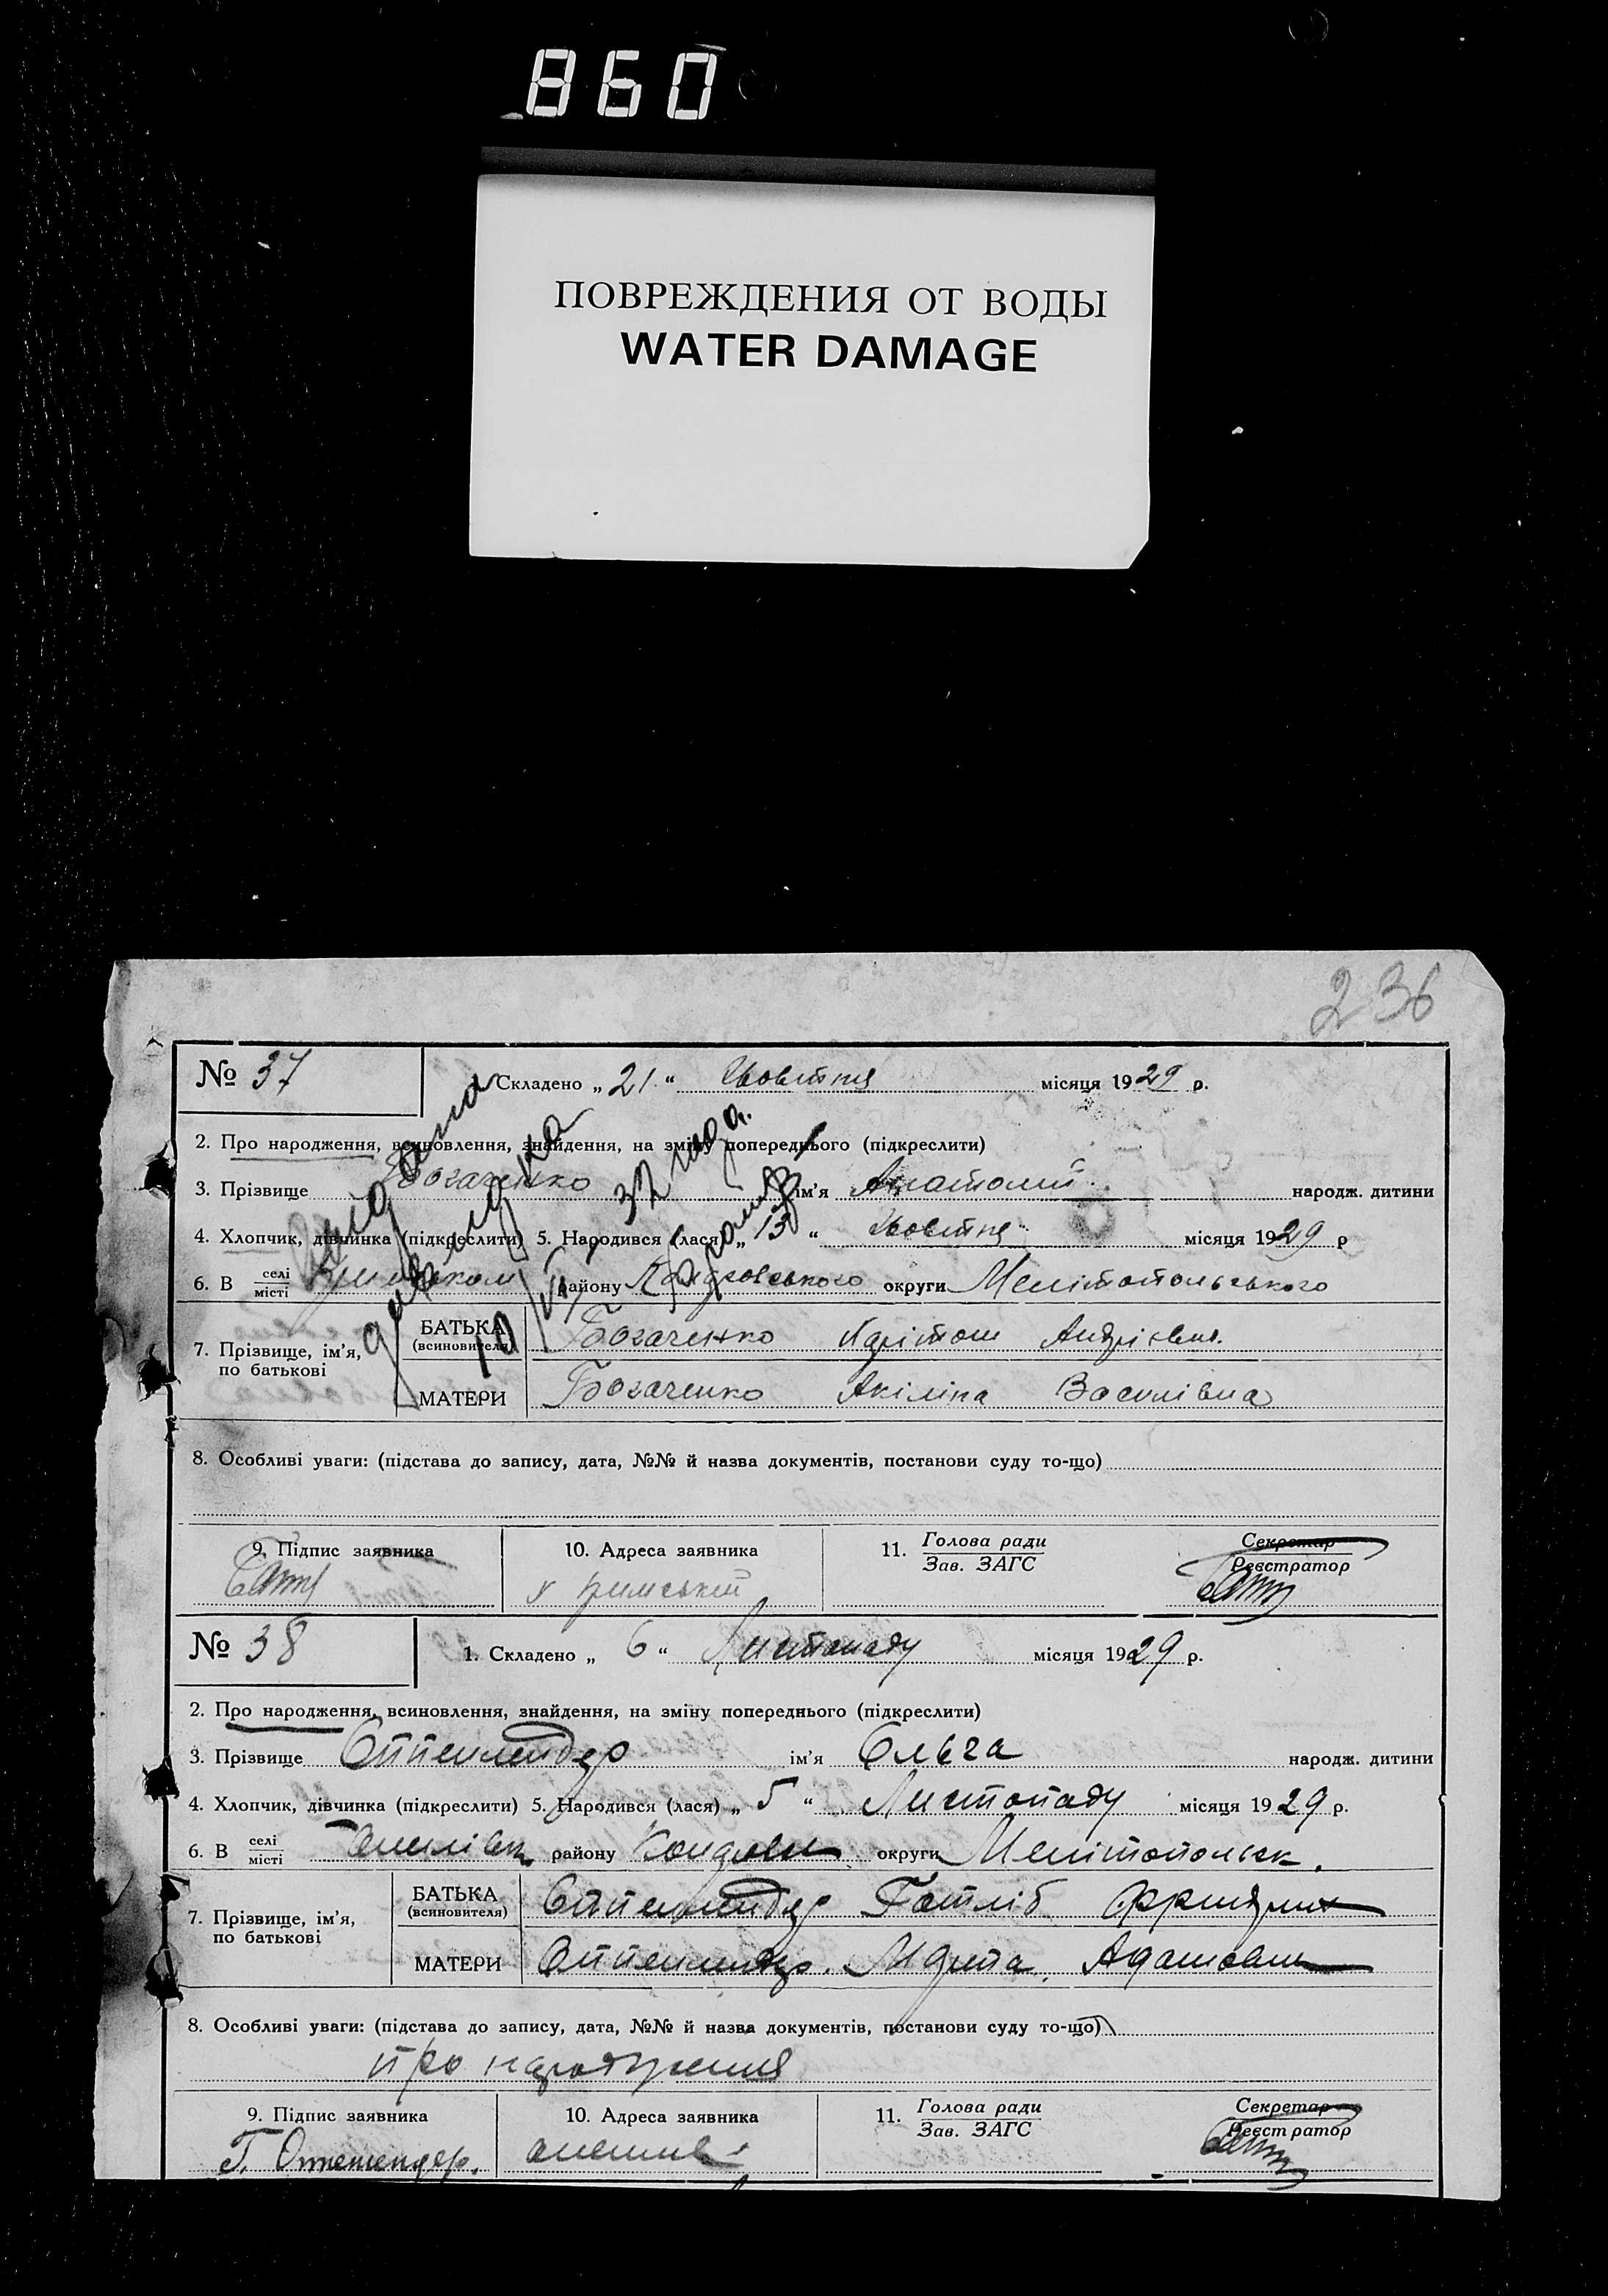 860
ПОВРЕЖДЕНИЯ ОТ ВОДЫ
WATER DAMAGE
236
№ 37
Складено „ 21 “ Жовтня місяця 1929 р.
2. Про народження, всиновлення, знайдення, на зміну попереднього (підкреслити)
3. Прізвище Богаченко ім'я Анатолій народж. дитини
4. Хлопчик, дівчинка (підкреслити) 5. Народився (лася) „ 13 “ Жовтня місяця 1929 р
6. В селі місті району округи Мелітопольського
7. Прізвище, ім'я, по батькові
БАТЬКА (всиновителя) Богаченко Харітон
МАТЕРИ Богаченко Акіліна Василівна
8. Особливі уваги: (підстава до запису, дата, №№ й назва документів, постанови суду то-що)
9. Підпис заявника
10. Адреса заявника
11. Голова ради Зав. ЗАГС
Секретар Реєстратор
№ 38
1. Складено „ 6 “ Листопаду місяця 1929 р.
2. Про народження, всиновлення, знайдення, на зміну попереднього (підкреслити)
3. Прізвище Оппенлендер ім'я Ольга народж. дитини
4. Хлопчик, дівчинка (підкреслити) 5. Народився (лася) „ 5 “ Листопаду місяця 1929 р.
6. В селі місті району округи Мелітопольск.
7. Прізвище, ім'я, по батькові
БАТЬКА (всиновителя) Оппенлендер Готліб
МАТЕРИ Оппенлендер. Адамовна
8. Особливі уваги: (підстава до запису, дата, №№ й назва документів, постанови суду то-що)
про народження
9. Підпис заявника
10. Адреса заявника
11. Голова ради Зав. ЗАГС
Секретар Реєстратор